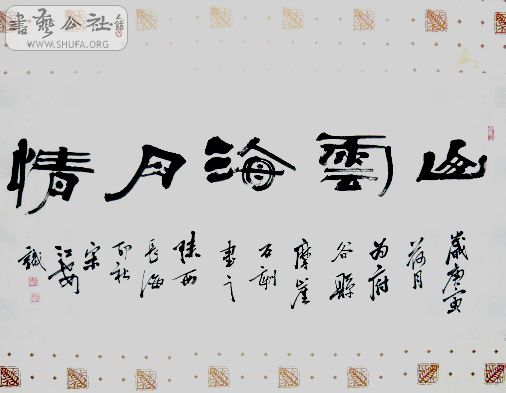 書藝公社
WWW.SHUFA.ORG
山雲海月情
歲庚寅
荷月
为府
谷縣
摩崖
石刻
書之
陕西
長海
印社
宋
誠